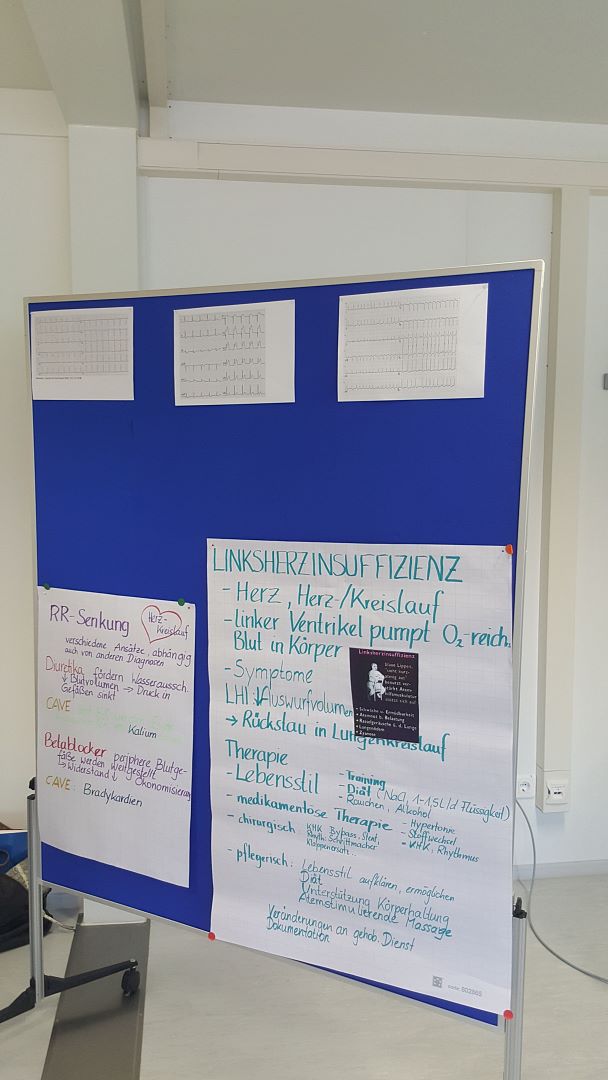 RR-Senkung
Herz-
Kreislauf
verschiedene Ansätze, abhängig
auch von anderen Diagnosen
Diuretika fördern Wasseraussch.
↓ Blutvolumen → Druck in
Gefäßen sinkt
CAVE
Kalium
Betablocker periphere Blutge-
fäße werden weitgestellt
→ Widerstand ↓ Ökonomisierung
CAVE: Bradykardien
LINKSHERZINSUFFIZIENZ
- Herz, Herz-/Kreislauf
- linker Ventrikel pumpt O₂-reich.
Blut in Körper
- Symptome
LHI ↓ Auswurfvolumen
→ Rückstau in Lungenkreislauf
Linksherzinsuffizienz
blaue Lippen,
• Schwäche u. Ermüdbarkeit
• Atemnot b. Belastung
• Rasselgeräusche ü. d. Lunge
• Lungenödem
• Zyanose
Therapie
- Lebensstil
- Training
- Diät (NaCl, 1-1,5L/d Flüssigkeit)
- Rauchen, Alkohol
- medikamentöse Therapie
- Hypertonie
- Stoffwechsel
- KHK, Rhythmus
- chirurgisch KHK Bypass, Stent,
Rhyth. Schrittmacher
Klappenersatz...
- pflegerisch: Lebensstil aufklären, ermöglichen
Diät
Unterstützung Körperhaltung
Atemstimulierende Massage
Veränderungen an gehob. Dienst
Dokumentation